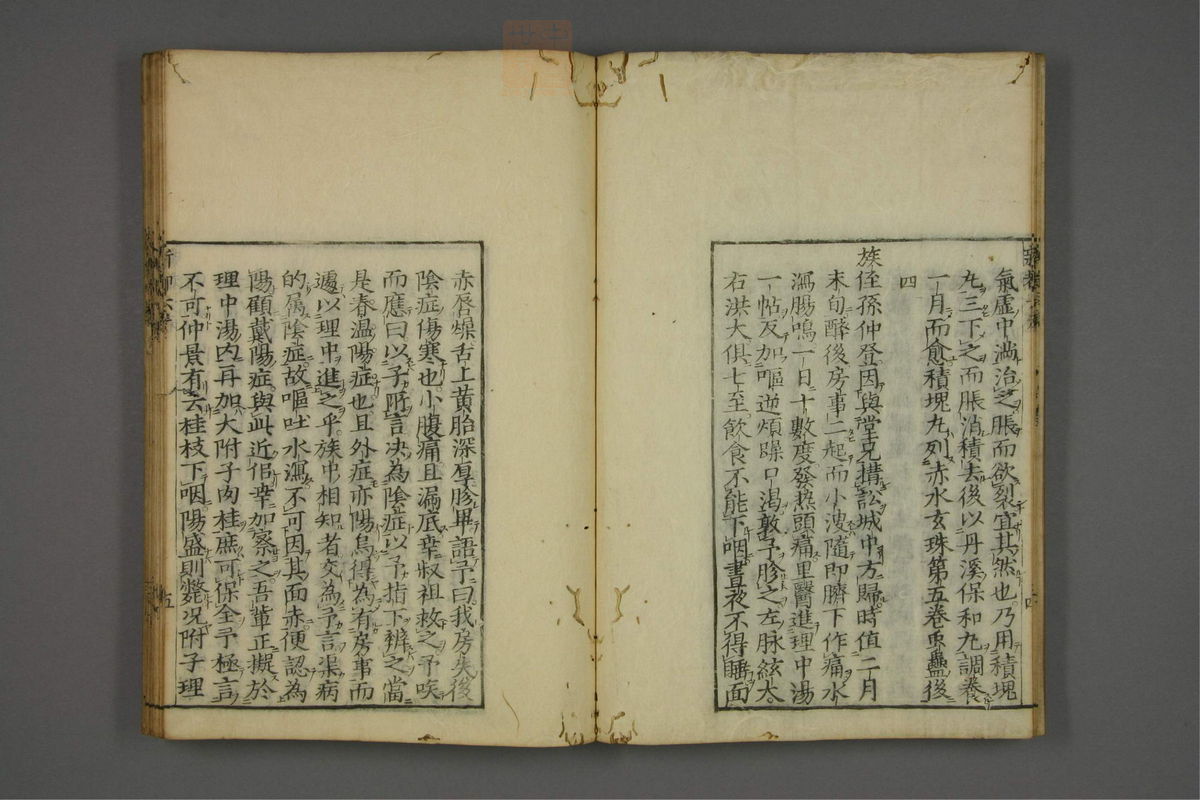 氣虛中滿治之脹而欲裂宜其然也乃用積塊
丸三下之而脹消積去後以丹溪保和丸調養
一月而愈積塊丸列赤水玄珠第五卷虫蠱後
四
族侄孫仲登因與堂兄搆訟城中方歸時值二月
末旬醉後房事二起而小溲隨即臍下作痛水
瀉腸鳴一日十數度發熱頭痛里醫進理中湯
一帖反加嘔逆煩躁口渴敦予胗之左脉絃大
右洪大俱七至飲食不能下咽晝夜不得睡面
赤唇燥舌上黃胎深厚胗畢語予曰我房失後
陰症傷寒也小腹痛且漏底幸叔祖救之予唉
而應曰以子所言决為陰症以予指下辨之當
是春溫陽症也且外症亦陽烏得為有房事而
遽以理中進之乎族中相知者交為予言渠病
的属陰症故嘔吐水瀉不可因其面赤便認為
陽顧戴陽症與此近侣幸加察之吾輩正擬於
理中湯內再加大附子肉桂庶可保全予極言
不可仲景有云桂枝下咽陽盛則斃况附子理
五